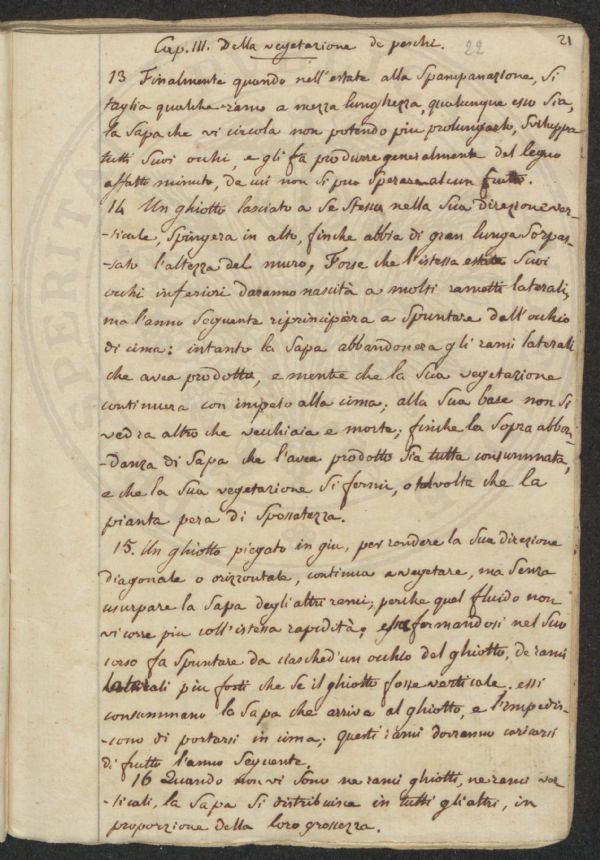 Cap. III. Della vegetazione de peschi. 22 21
13 Finalmente quando nell'estate alla Spampanazione, Si
taglia qualche ramo a mezza lunghezza, qualunque esso Sia,
la Sapa che vi circola non potendo piu prolungarlo, Sviluppa
tutti Suoi occhi, e gli fa produrre generalmente del legno
affatto minuto, da cui non Si puo Sperare alcun frutto.
14 Un ghiotto lasciato a Se Stesso nella Sua direzione ver-
-ticale, Spingera in alto, finche abbia di gran lunga Sorpas-
-sato l'altezza del muro, Forse che l'istessa estate Suoi
occhi inferiori daranno nascità a molti rametti laterali,
ma l'anno Seguente riprincipèra a Spuntare dall'occhio
di cima: intanto la Sapa abbandonera gli rami laterali
che avea prodotto, e mentre che la Sua vegetazione
continuera con impeto alla cima; alla Sua base non Si
vedra altro che vecchiaia e morte; finche la Sopra abbon-
-danza di Sapa che l'avea prodotto Sia tutta consummata,
e che la Sua vegetazione Si fermi, o talvolta che la
pianta pera di Spossatezza.
15. Un ghiotto piegato in giu, per rendere la Sua direzione
diagonale o orizzontale, continua a vegetare, ma Senza
usurpare la Sapa degli altri rami; perche quel fluido non
vi corre piu coll'istessa rapidità; essa fermandosi nel Suo
corso fa Spuntare da ciasched'un occhio del ghiotto, de rami
laterali piu forti che se il ghiotto fosse verticale. essi
consummano la Sapa che arriva al ghiotto, e l'impedis-
-cono di portarsi in cima; questi rami dovranno caricarsi
di frutto l'anno Seguente.
16 Quando non vi Sono ne rami ghiotti, ne rami ver-
-ticali, la Sapa Si distribuisce in tutti gli altri, in
proporzione della loro grossezza.